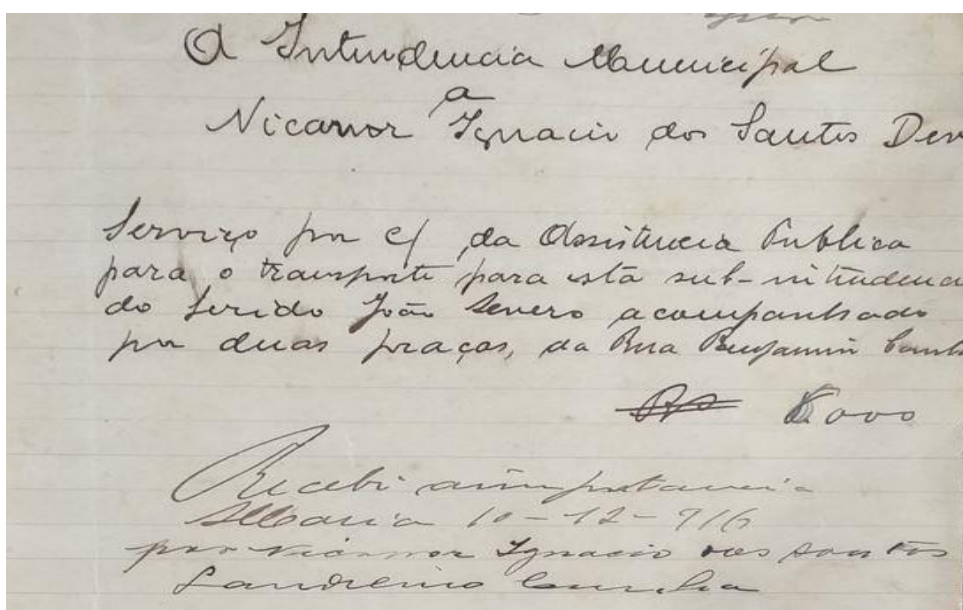 A Intendencia Municipal
a
Nicanor Ignacio dos Santos Dev
Serviço por c/ da Assistencia Publica
para o transporte para esta sub-intendenc
do ferido João Severo acompanhado
por duas praças, da Rua Benjamin Const
000
Recebi a importancia
S Maria 10-12-916
por Nicanor Ignacio dos Santos
Laudelino Cunha